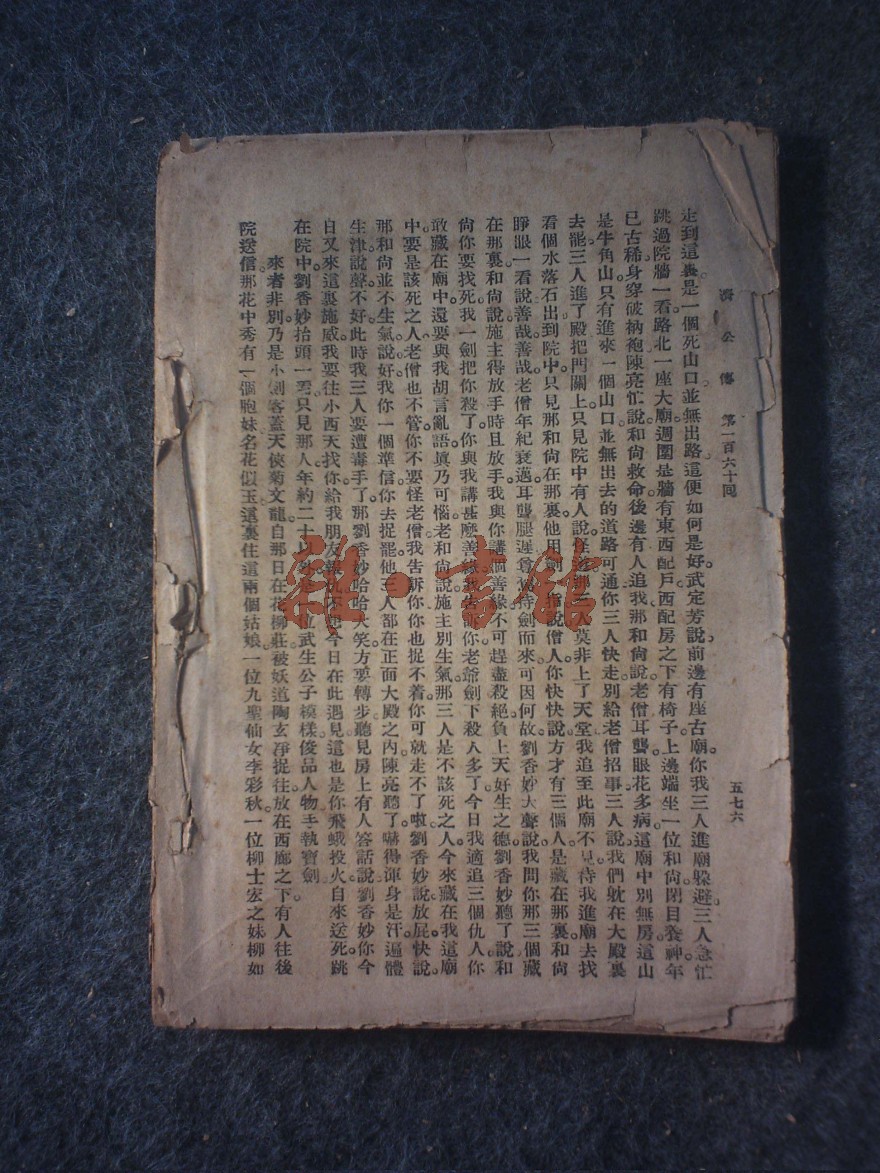 濟公傳 第一百六十回 五七六
走到這裏是一個死山口並無出路這便如何是好武定芳說前邊有座古廟你我三人進廟躲避三人急忙
跳過院牆一看路北一座大廟週圍是牆有東西配戶西配房之下有椅子上邊端坐一位和尙閉目養神年
已古稀身穿破衲袍陳亮忙說和尙救命後邊有人追我那和尙說老僧耳聾眼花多病這廟中別無房這山
是牛角山只有進來一個山口並無出去的道路可通你三人快走別給老僧招事三人說我們躭在大殿裏
去罷三人進了殿把門關上只見院中有人說 三人莫非上了天堂我追至此廟不見待我進廟去找
看個水落石出到院中只見那和尙在那裏他用劍 指說僧人你快快說方才有三個人是藏在那裏和尙
睜眼一看說善哉善哉老僧年紀衰邁耳聾腿遲 持劍而來可因何故劉香妙大聲說我問你那三個藏
在那裏和尙說施主得放手時且放手我與你講個善緣不可趕盡殺絕負上天好生之德劉香妙聽了說和
尙你要找死我一劍把你殺了你與我講甚麽善緣我告訴你老爺劍下殺人多了今日我適追三個仇人你
敢藏在廟中還要與我胡言亂語眞乃可惱老和尙說施主別生氣那三人是不該死之人今來藏在我這廟
中要是該死之人老僧也不管你不要怪老僧我告訴你你也捉不着你可就走不了啦劉香妙說放屁快說
那和尙並不生氣說好我你一個準信你去捉罷他三人都在正面大殿之內陳亮聽了嚇得渾身是汗遍體
生津說聲不好此時我三人要遭毒手了那劉香妙哈哈大笑方要轉步聽見房上有人答話說劉香妙你今
日又來這裏施威我要往小西天找你給我朋友報仇不想今日在此遇見這也是你飛蛾投火自來送死跳
在院中劉香妙抬頭一看只見那人年約二十以外是一位武生公子模樣俊品人物手執寶劍
來者非別乃是小劍客蓋天俠菊文龍自那日在花柳莊被妖道陶玄淨捉住放在西廊之下有人往後
院送信那花中秀有一個胞妹名花似玉這裏住這兩個姑娘一位九聖仙女李彩秋一位柳士宏之妹柳如
雜·書館